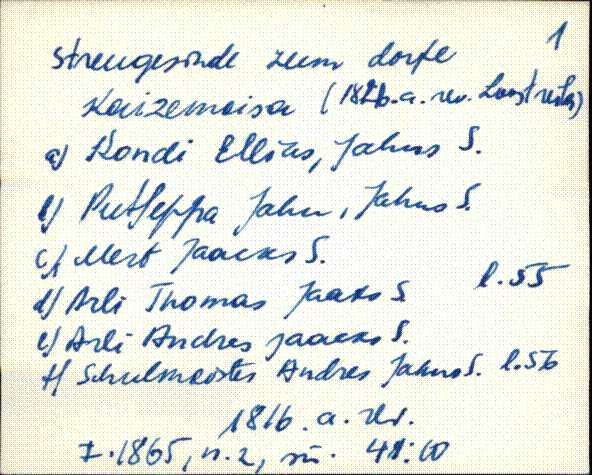 1
Streugesinde zum dorfe
Kaizemoisa (1826.a. rev.
a) Kondi Ellias, Jahns S.
b) Puttseppa Jahn, Jahns S.
c) Mert Jaacks S.
d) Arli Thomas Jaaks S. l.55
e) Arli Andres Jaacks S.
f) Schulmeister Andres Jahns S. l.56
1816. a. rev.
I.1865, n.2, sü. 41:10